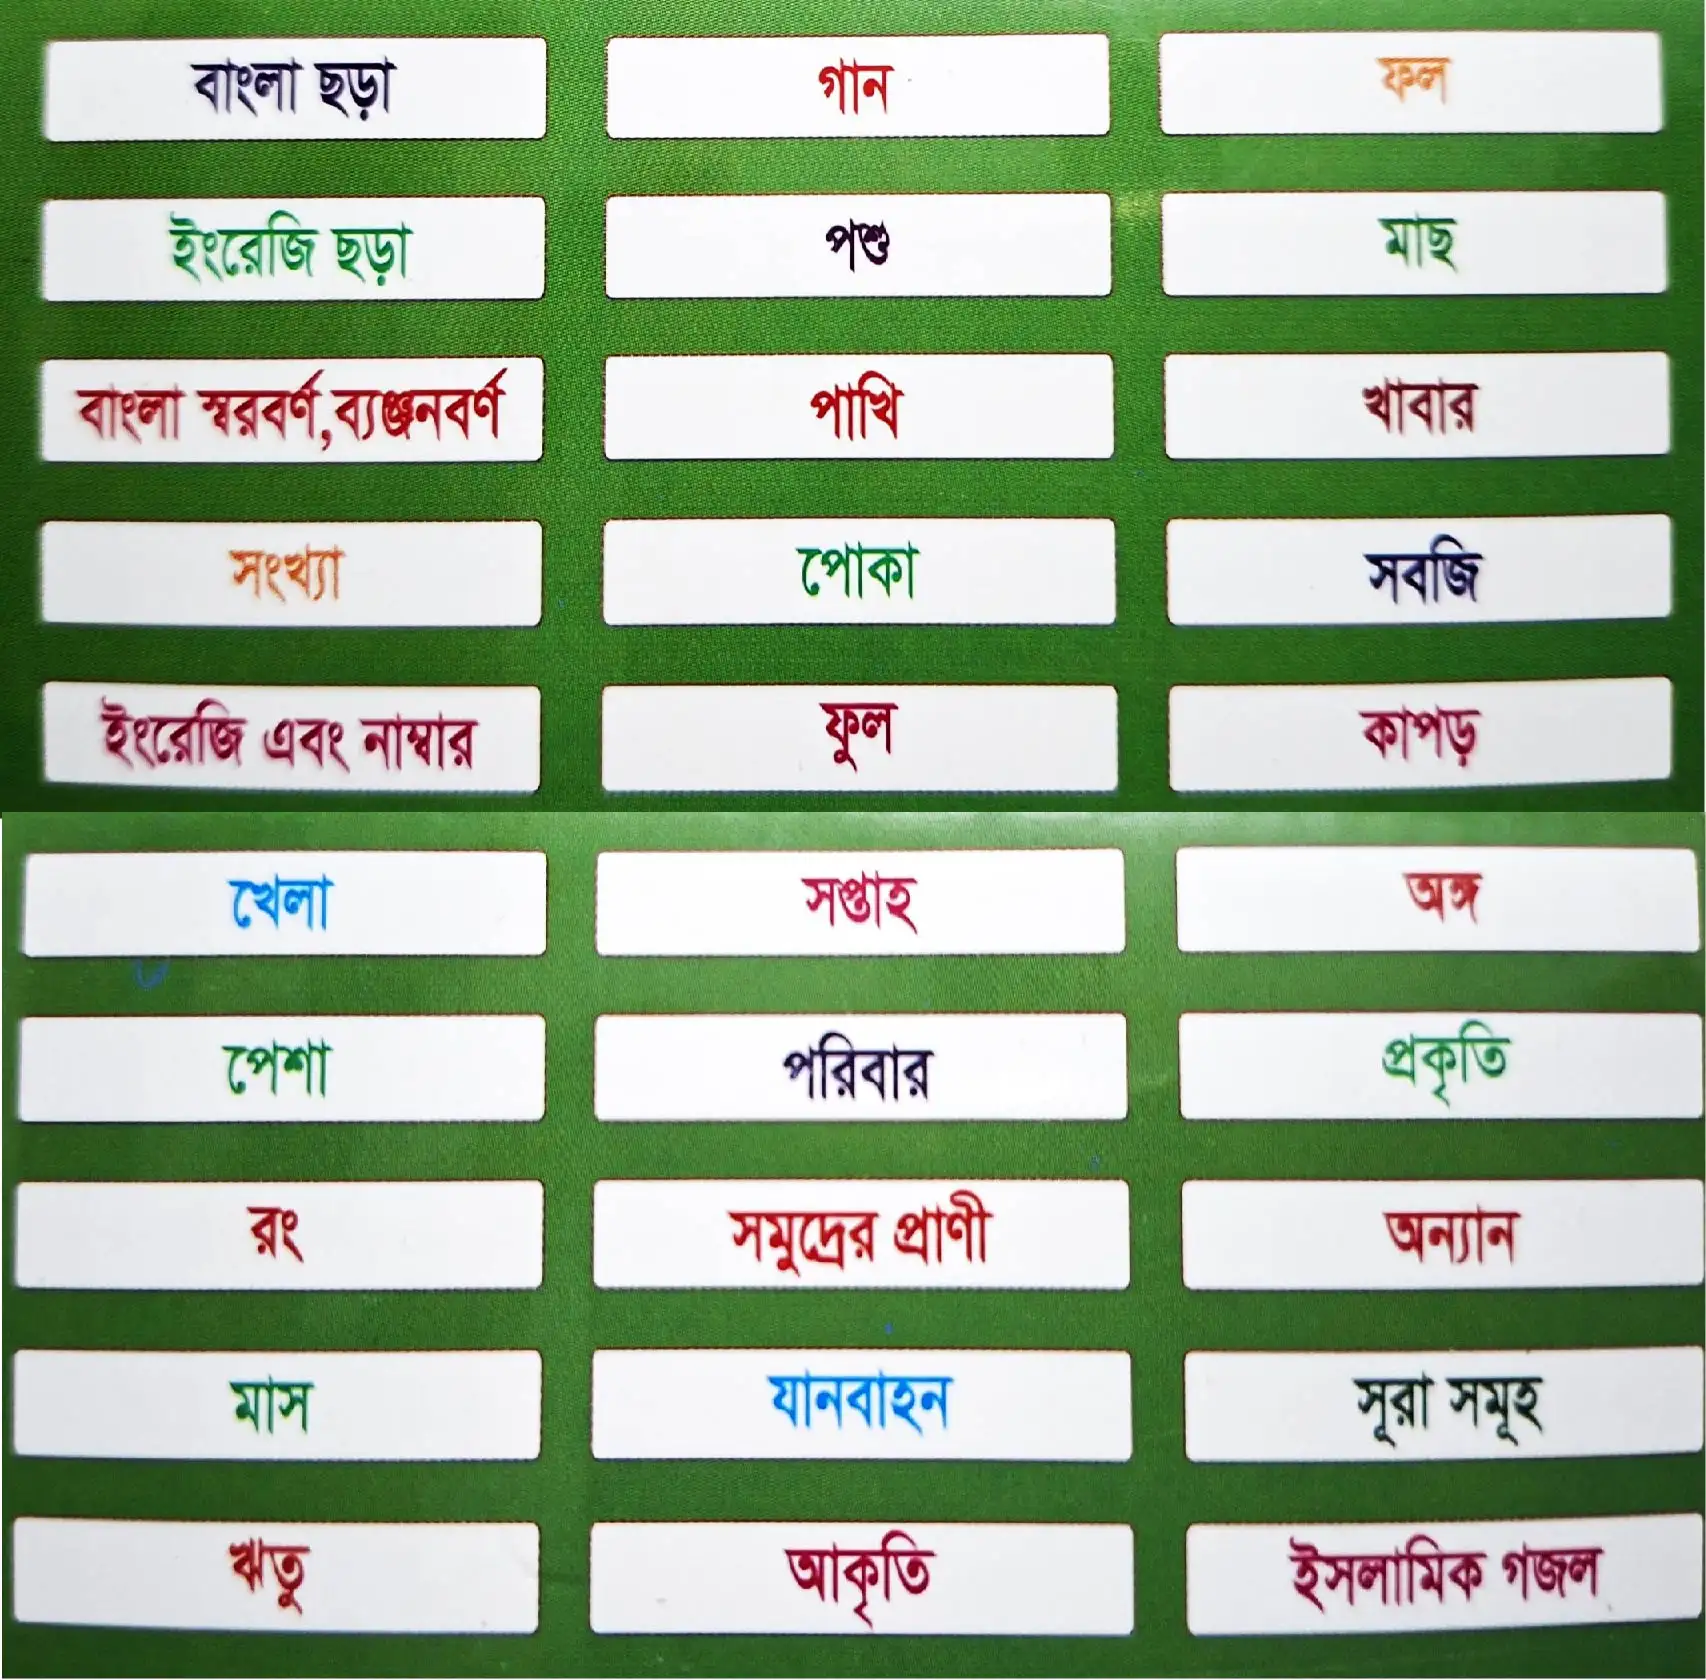 বাংলা ছড়া
গান
ফল
ইংরেজি ছড়া
পশু
মাছ
বাংলা স্বরবর্ণ,ব্যঞ্জনবর্ণ
পাখি
খাবার
সংখ্যা
পোকা
সবজি
ইংরেজি এবং নাম্বার
ফুল
কাপড়
খেলা
সপ্তাহ
অঙ্গ
পেশা
পরিবার
প্রকৃতি
রং
সমুদ্রের প্রাণী
অন্যান
মাস
যানবাহন
সূরা সমূহ
ঋতু
আকৃতি
ইসলামিক গজল